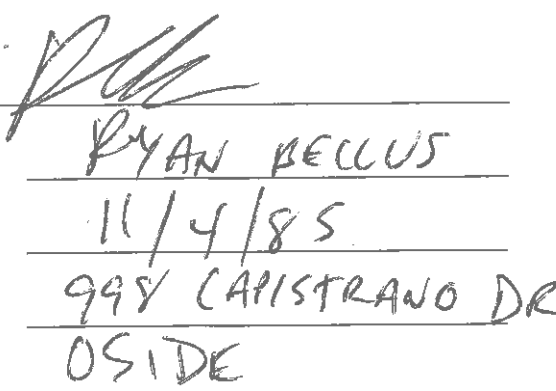 RYAN BELLUS
11/4/85
998 CAPISTRANO DR
OSIDE